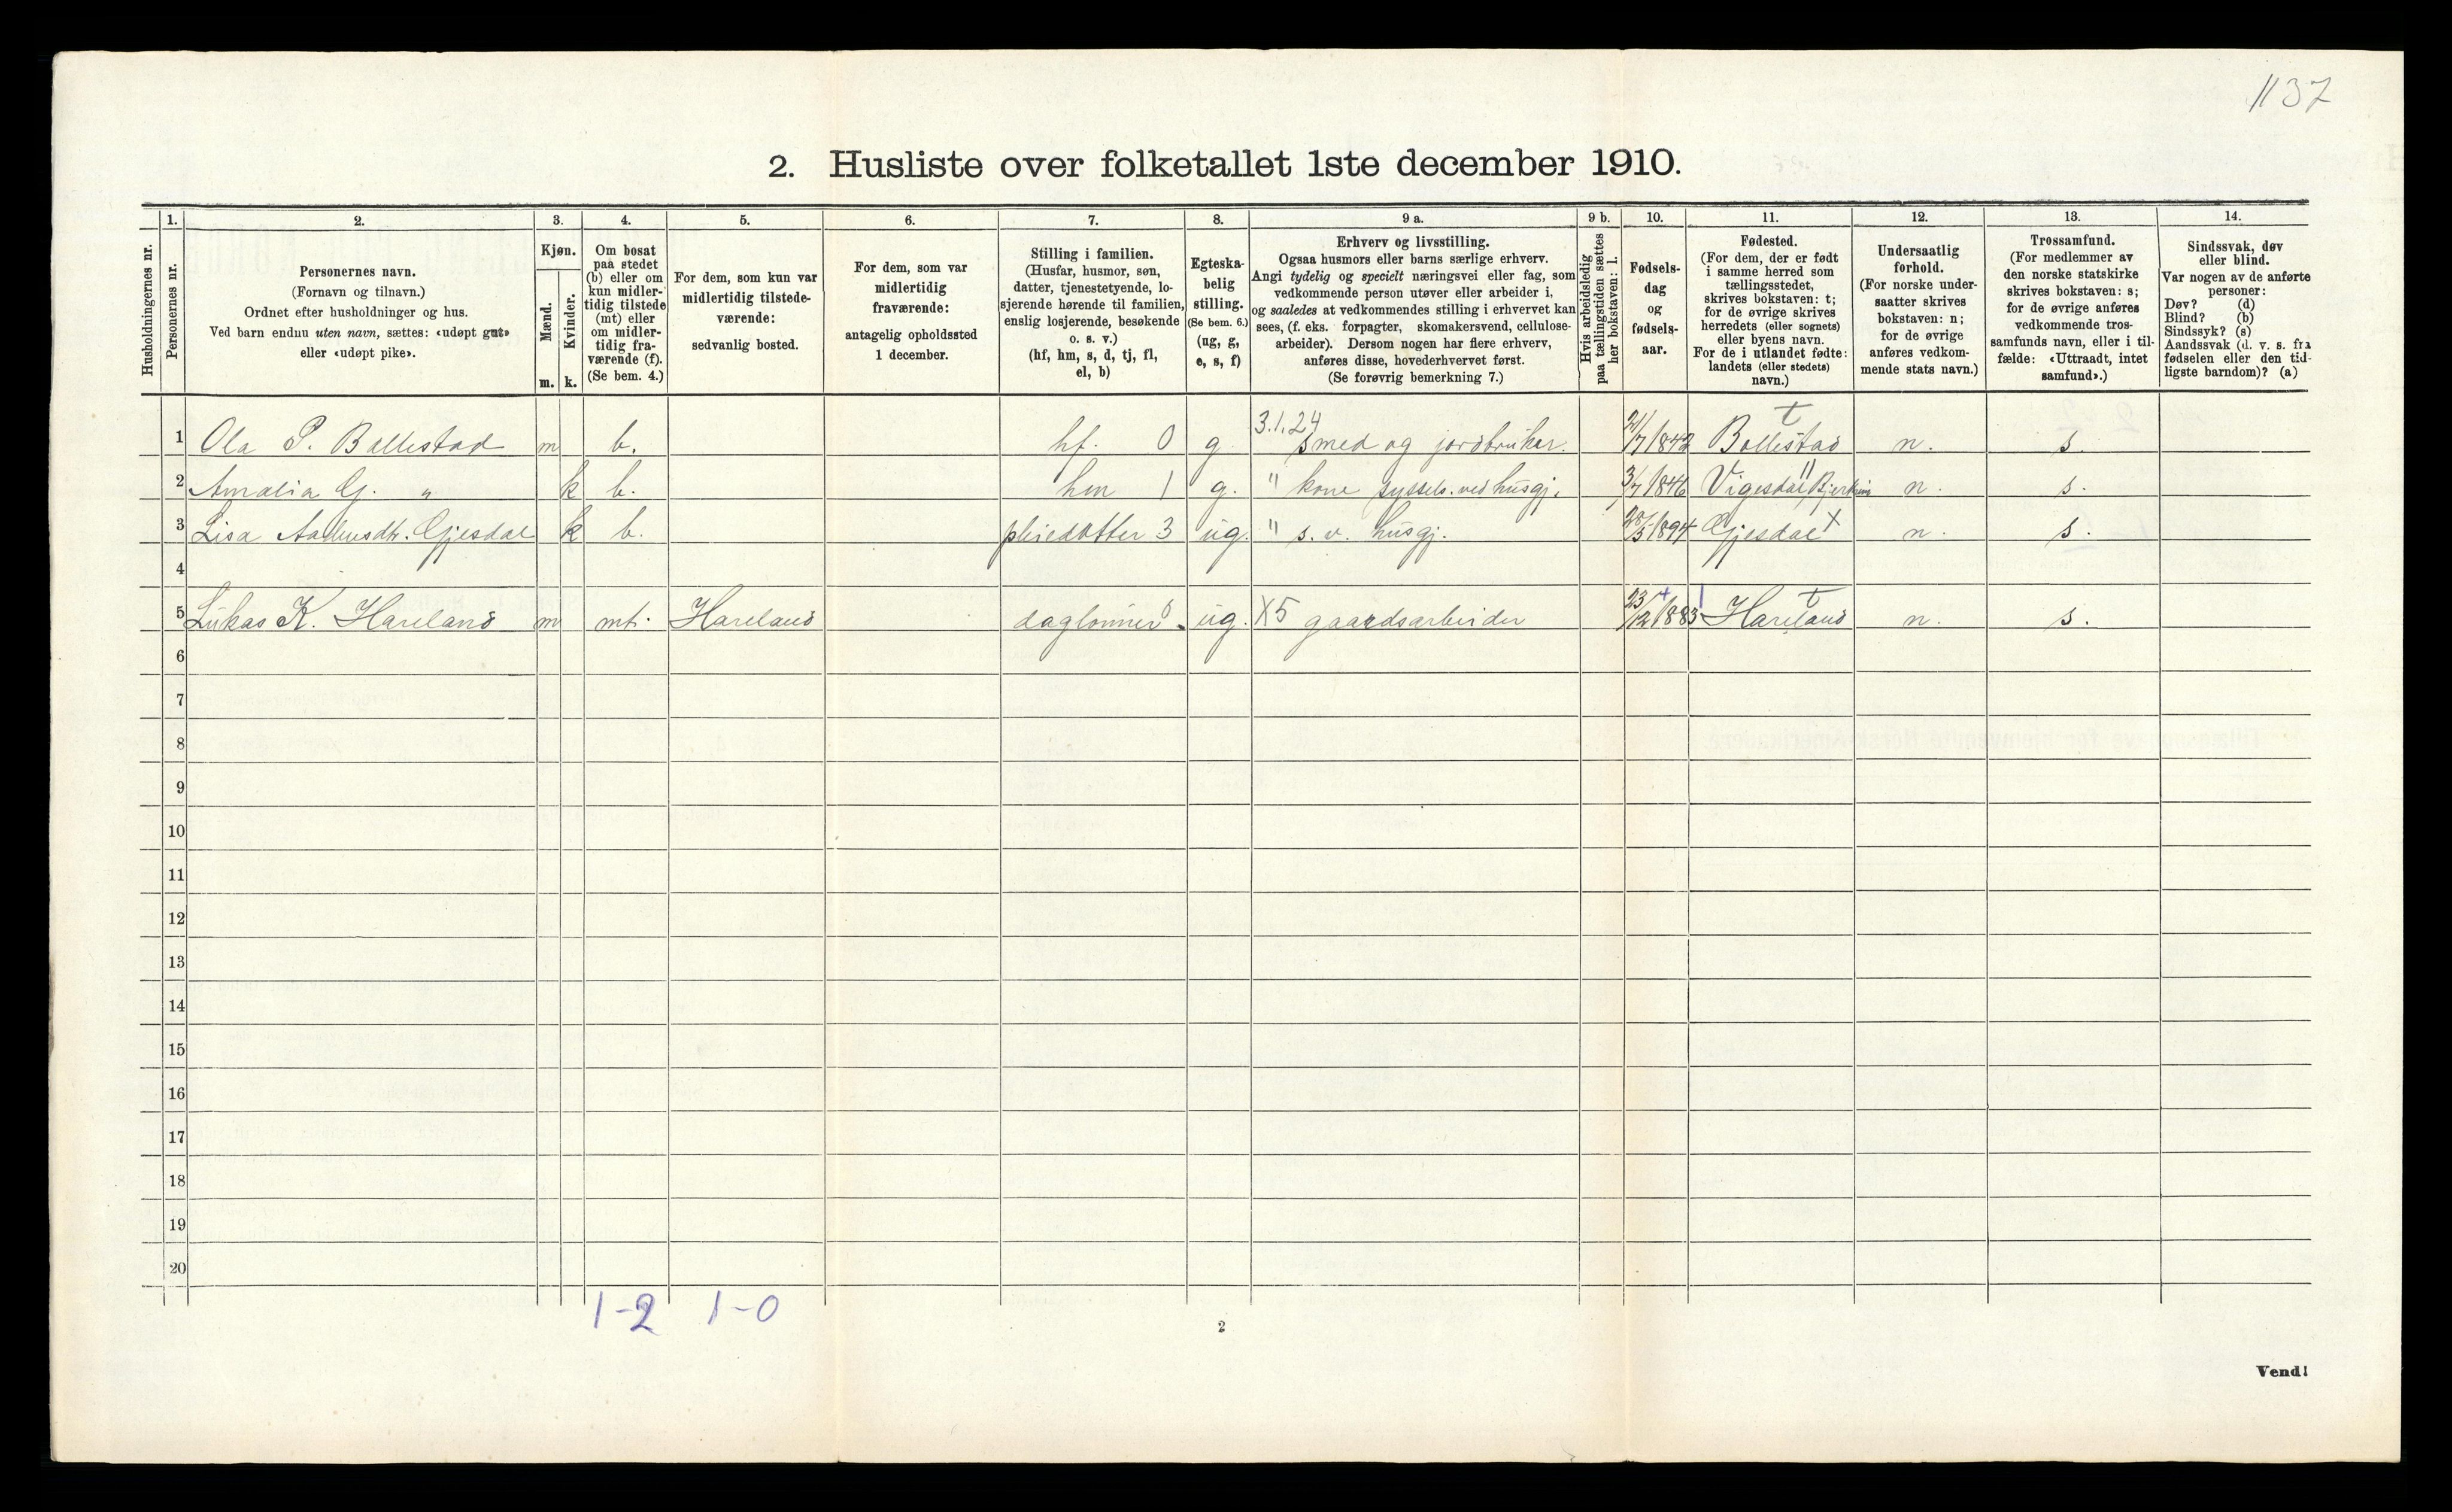 1137
2. Husliste over folketallet 1ste december 1910.
1. 2. 3. 4. 5. 6. 7. 8. 9 a. 9 b. 10. 11. 12. 13. 14.
Husholdningernes nr.
Personernes nr.
Personernes navn.
(Fornavn og tilnavn.)
Ordnet efter husholdninger og hus.
Ved barn endnu uten navn, sættes: «udøpt gut»
eller «udøpt pike».
Kjøn.
Mænd.
Kvinder.
m. k.
Om bosat
paa stedet
(b) eller om
kun midler-
tidig tilstede
(mt) eller
om midler-
tidig fra-
værende (f).
(Se bem. 4.)
For dem, som kun var
midlertidig tilstede-
værende:
sedvanlig bosted.
For dem, som var
midlertidig
fraværende:
antagelig opholdssted
1 december.
Stilling i familien.
(Husfar, husmor, søn,
datter, tjenestetyende, lo-
sjerende hørende til familien,
enslig losjerende, besøkende
o. s. v.)
(hf, hm, s, d, tj, fl,
el, b)
Egteska-
belig
stilling.
(Se bem. 6.)
(ug, g,
e, s, f)
Erhverv og livsstilling.
Ogsaa husmors eller barns særlige erhverv.
Angi tydelig og specielt næringsvei eller fag, som
vedkommende person utøver eller arbeider i,
og saaledes at vedkommendes stilling i erhvervet kan
sees, (f. eks. forpagter, skomakersvend, cellulose-
arbeider). Dersom nogen har flere erhverv,
anføres disse, hovederhvervet først.
(Se forøvrig bemerkning 7.)
Hvis arbeidsledig
paa tællingstiden sættes
her bokstaven: l.
Fødsels-
dag
og
fødsels-
aar.
Fødested.
(For dem, der er født
i samme herred som
tællingsstedet,
skrives bokstaven: t;
for de øvrige skrives
herredets (eller sognets)
eller byens navn.
For de i utlandet fødte:
landets (eller stedets)
navn.)
Undersaatlig
forhold.
(For norske under-
saatter skrives
bokstaven: n;
for de øvrige
anføres vedkom-
mende stats navn.)
Trossamfund.
(For medlemmer av
den norske statskirke
skrives bokstaven: s;
for de øvrige anføres
vedkommende tros-
samfunds navn, eller i til-
fælde: «Uttraadt, intet
samfund».)
Sindssvak, døv
eller blind.
Var nogen av de anførte
personer:
Døv? (d)
Blind? (b)
Sindssyk? (s)
Aandssvak (d. v. s. fra
fødselen eller den tid-
ligste barndom)? (a)
3.1.24 t
1 Ola P. Ballestad m b. hf. 0 g smed og jordbruker. 21/7 1842 Bollestad n. s.
2 Amalia G. " k b. hm 1 g. " kone syssels. ved husgj. 3/7 1846 Vigesdal Bjerkrim n. s.
3 Lisa Gjesdal k b. pleiedatter 3 ug. " s. v. husgj. 1894 Gjesdal x n. s.
4
5 Lukas K. Hareland m mt. Hareland daglønner ug. X5 gaardsarbeider 23/12 1883 Hareland t n. s.
6
7
8
9
10
11
12
13
14
15
16
17
18
19
20
1-2 1-0
2
Vend!